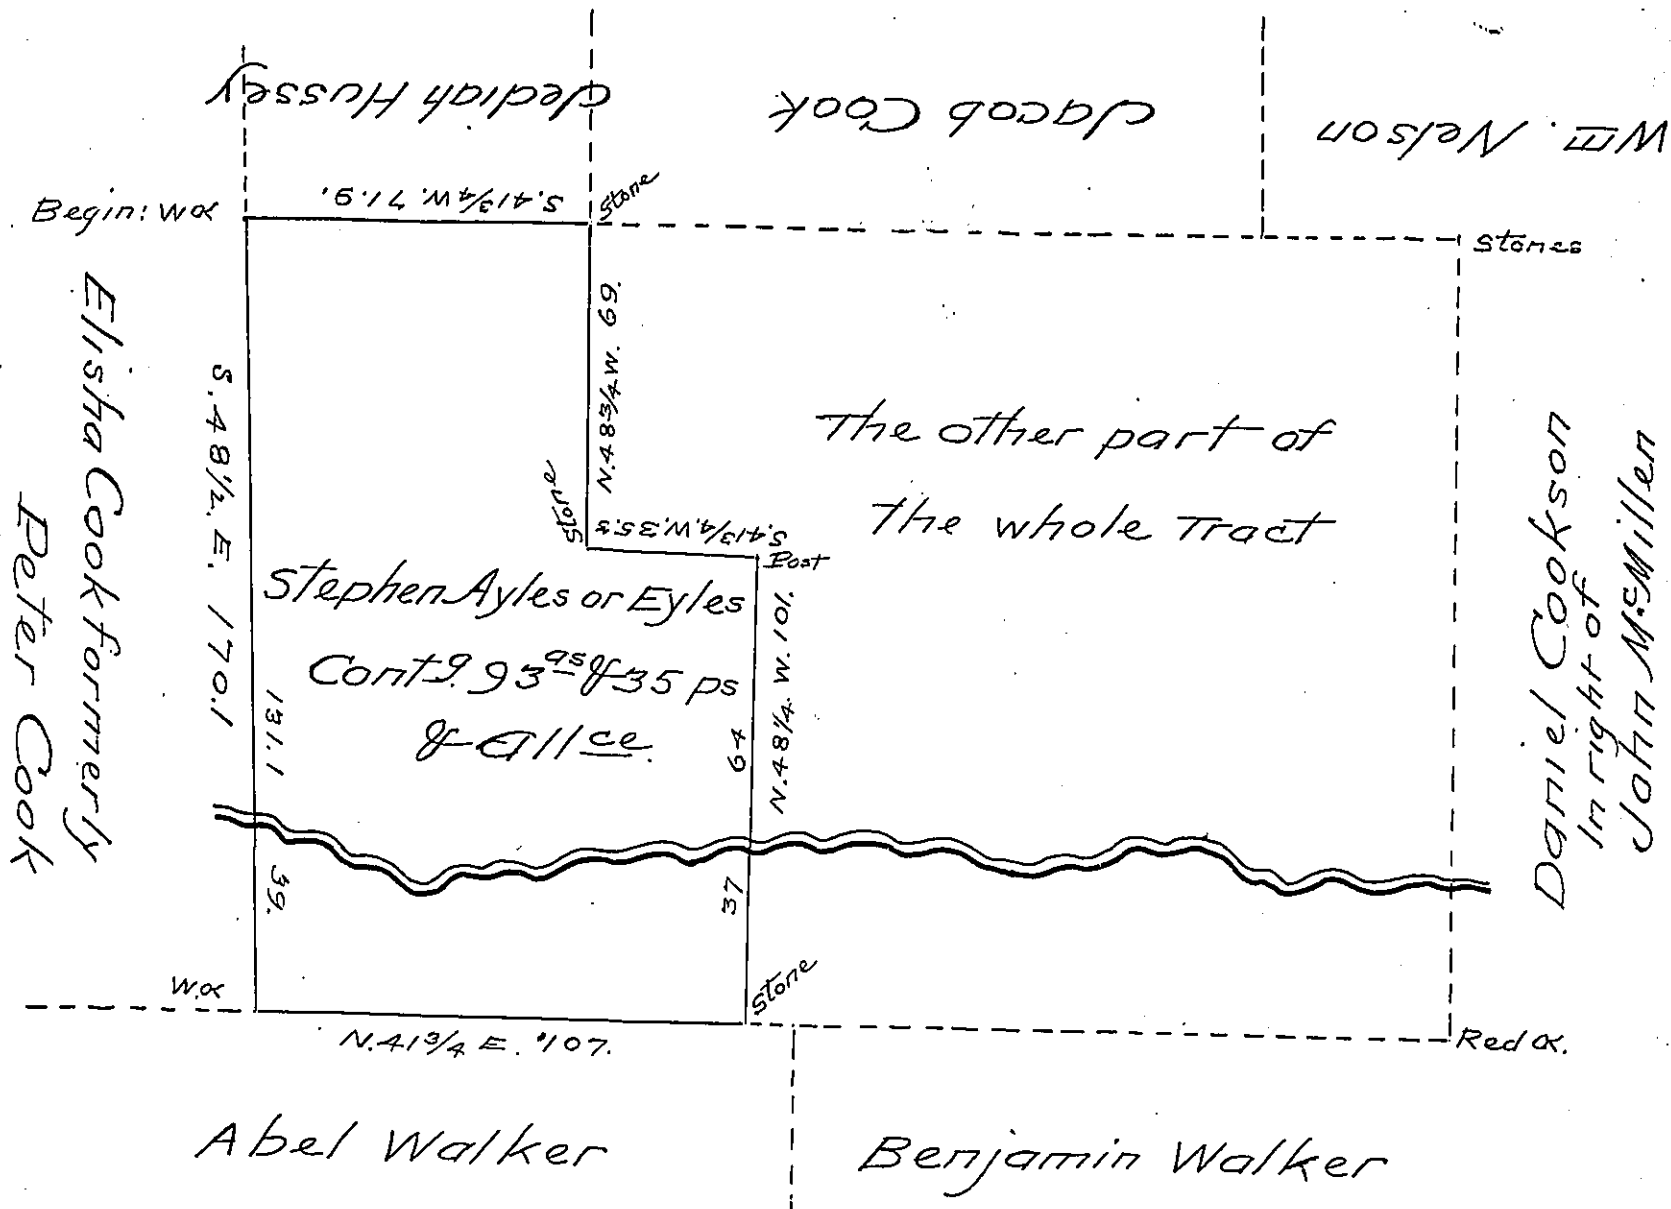 Jediah Hussey
Jacob Cook
Wm. Nelson
Begin: W.O.
S. 41¾ W. 71.9.
Stone
Stones
Elisha Cook formerly
Peter Cook
S. 48½. E. 170.1
131.1
39.
N. 48¾ W. 69.
Stone
S. 41¾ W. 35.3
Post
The other part of
the whole Tract
Stephen Ayles or Eyles
Contg. 93as & 35 ps
& Allce.
N. 48¼. W. 101.
64
37
Daniel Cookson
In right of
John McMillen
W.O.
Stone
N. 41¾ E. 107.
Red O.
Abel Walker
Benjamin Walker